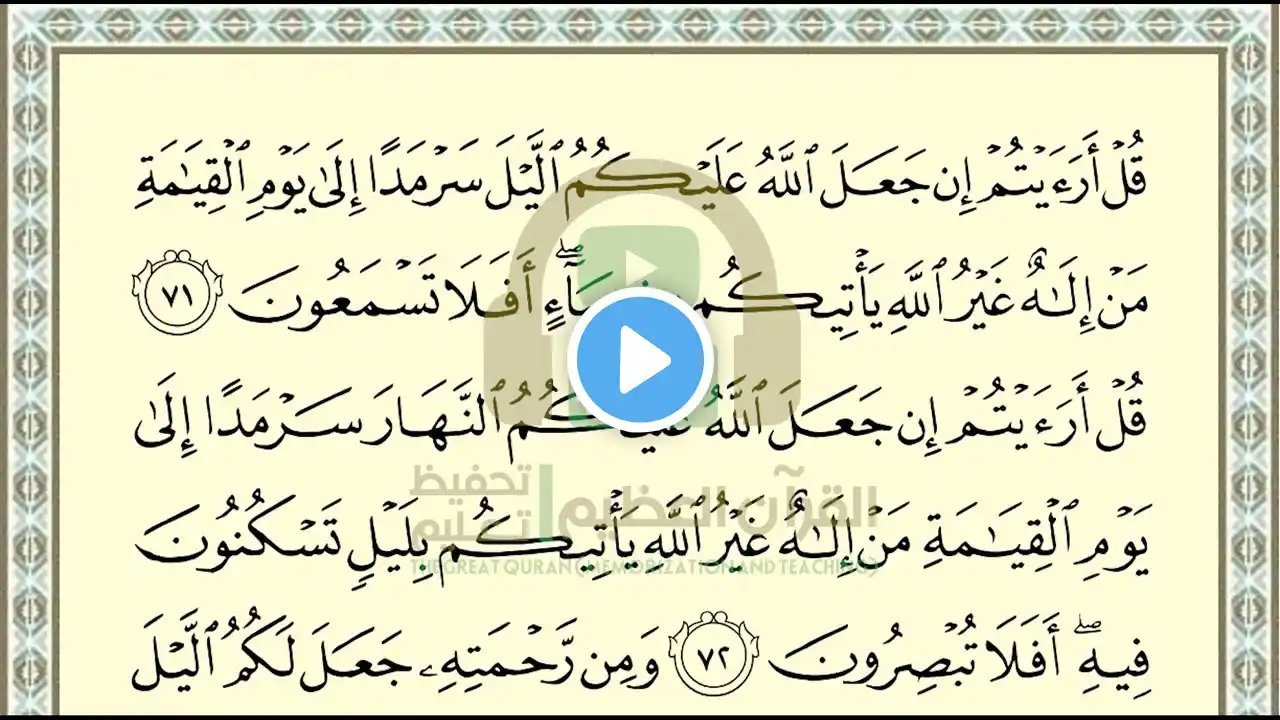 قُلْ أَرَءَيْتُمْ إِن جَعَلَ ٱللَّهُ عَلَيْكُمُ ٱلَّيْلَ سَرْمَدًا إِلَىٰ يَوْمِ ٱلْقِيَـٰمَةِ
مَنْ إِلَـٰهٌ غَيْرُ ٱللَّهِ يَأْتِيكُم أَفَلَا تَسْمَعُونَ ٧١
قُلْ أَرَءَيْتُمْ إِن جَعَلَ ٱللَّهُ عَلَيْكُمُ ٱلنَّهَارَ سَرْمَدًا إِلَىٰ
يَوْمِ ٱلْقِيَـٰمَةِ مَنْ إِلَـٰهٌ غَيْرُ ٱللَّهِ يَأْتِيكُم بِلَيْلٍ تَسْكُنُونَ
فِيهِ ۖ أَفَلَا تُبْصِرُونَ ٧٢ وَمِن رَّحْمَتِهِۦ جَعَلَ لَكُمُ ٱلَّيْلَ
القرآن العظيم | تحفيظ تعليم
THE GREAT QURAN (MEMORIZATION AND TEACHING)